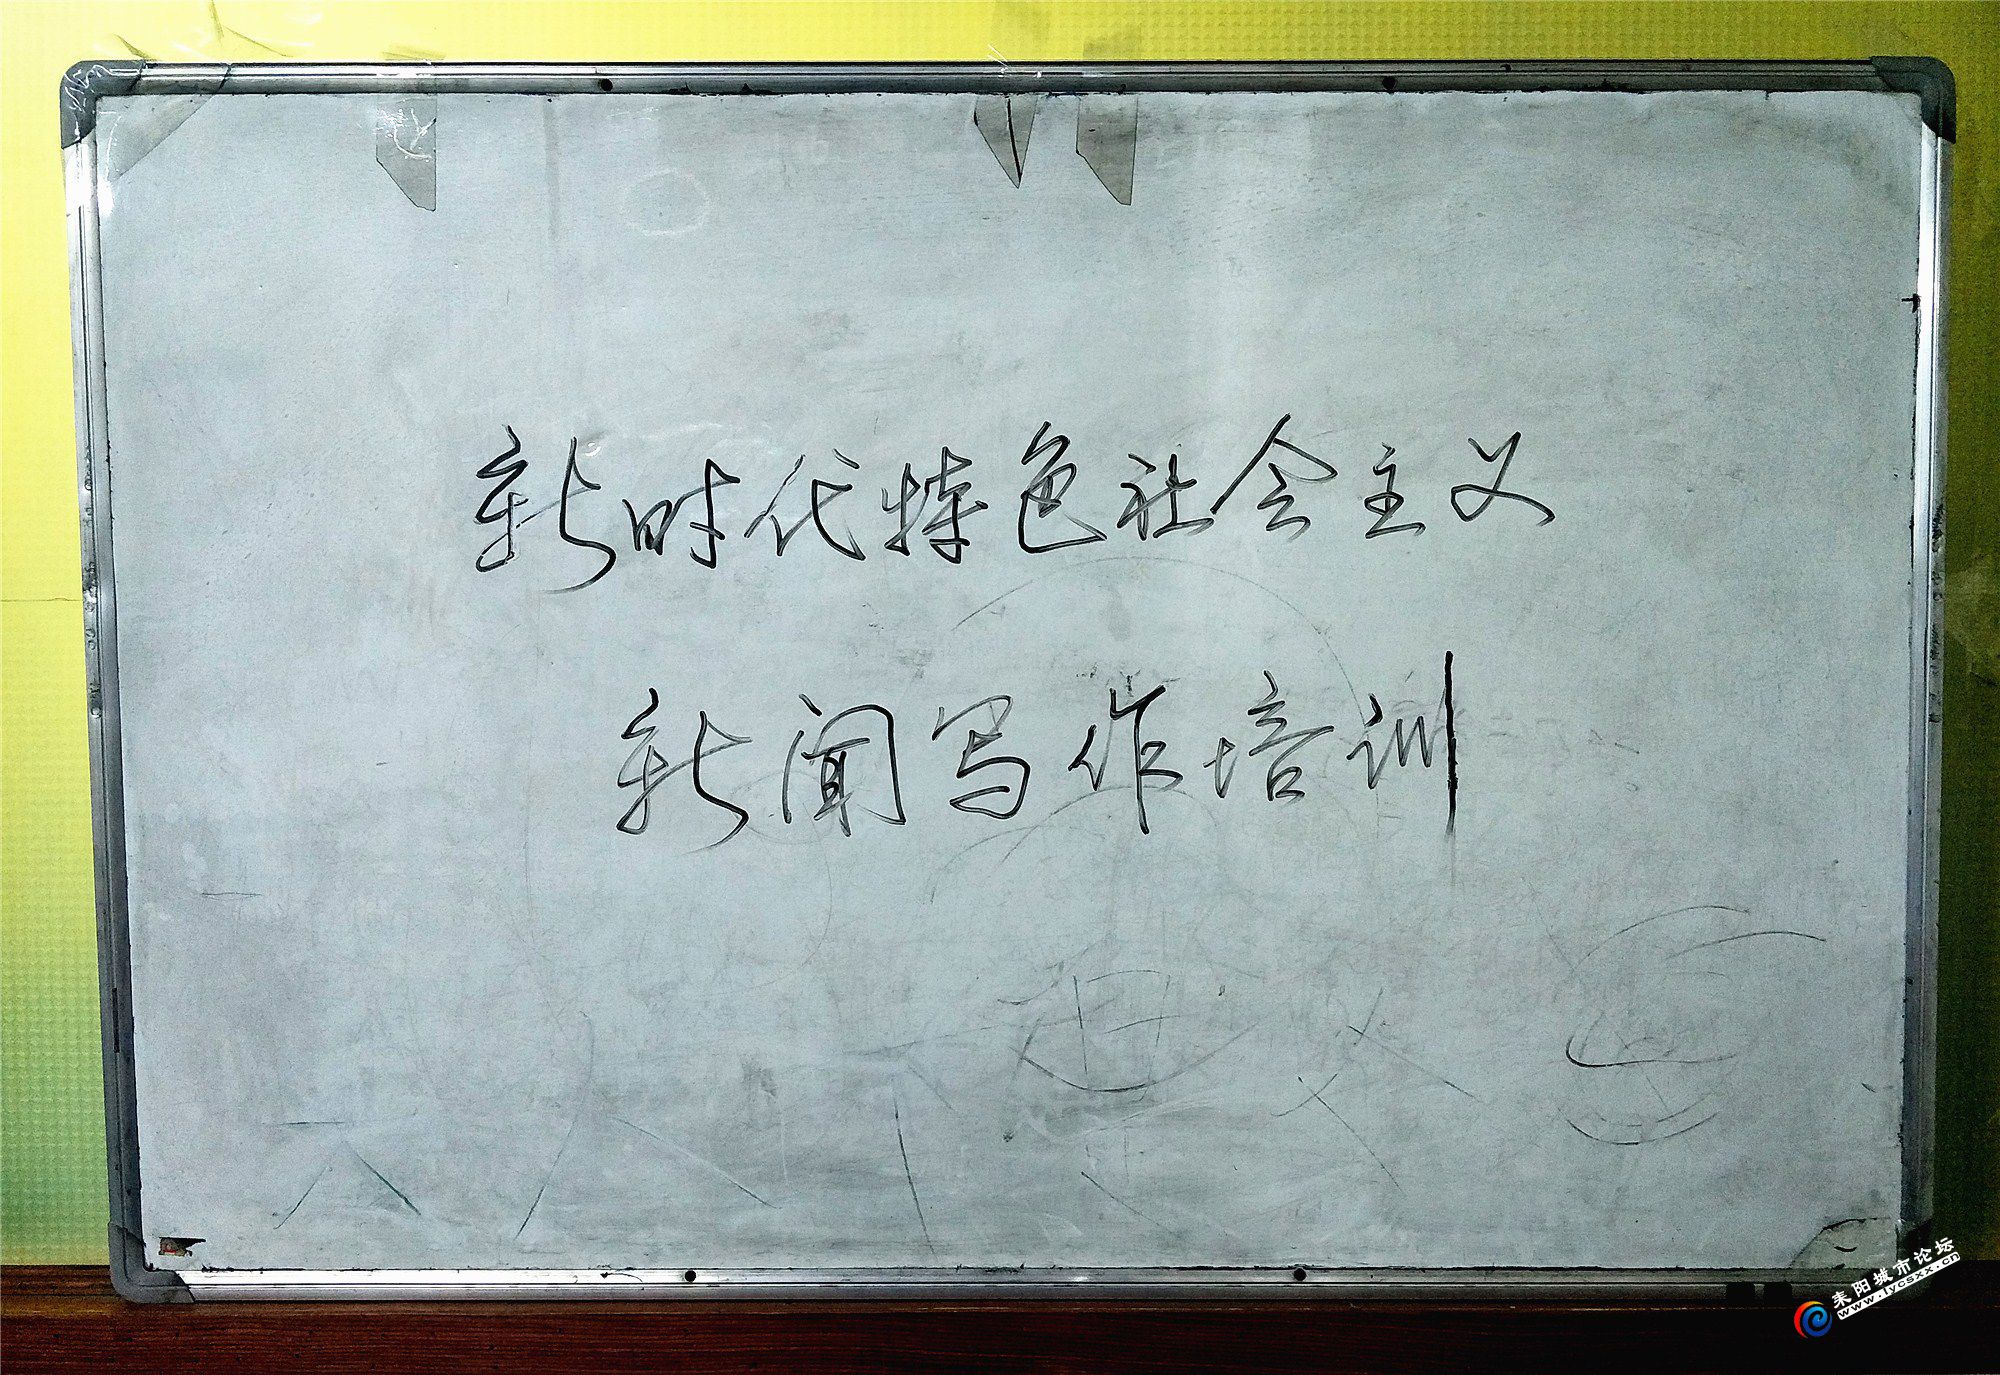 新时代特色社会主义
新闻写作培训
耒阳城市论坛
www.lycsxx.cn